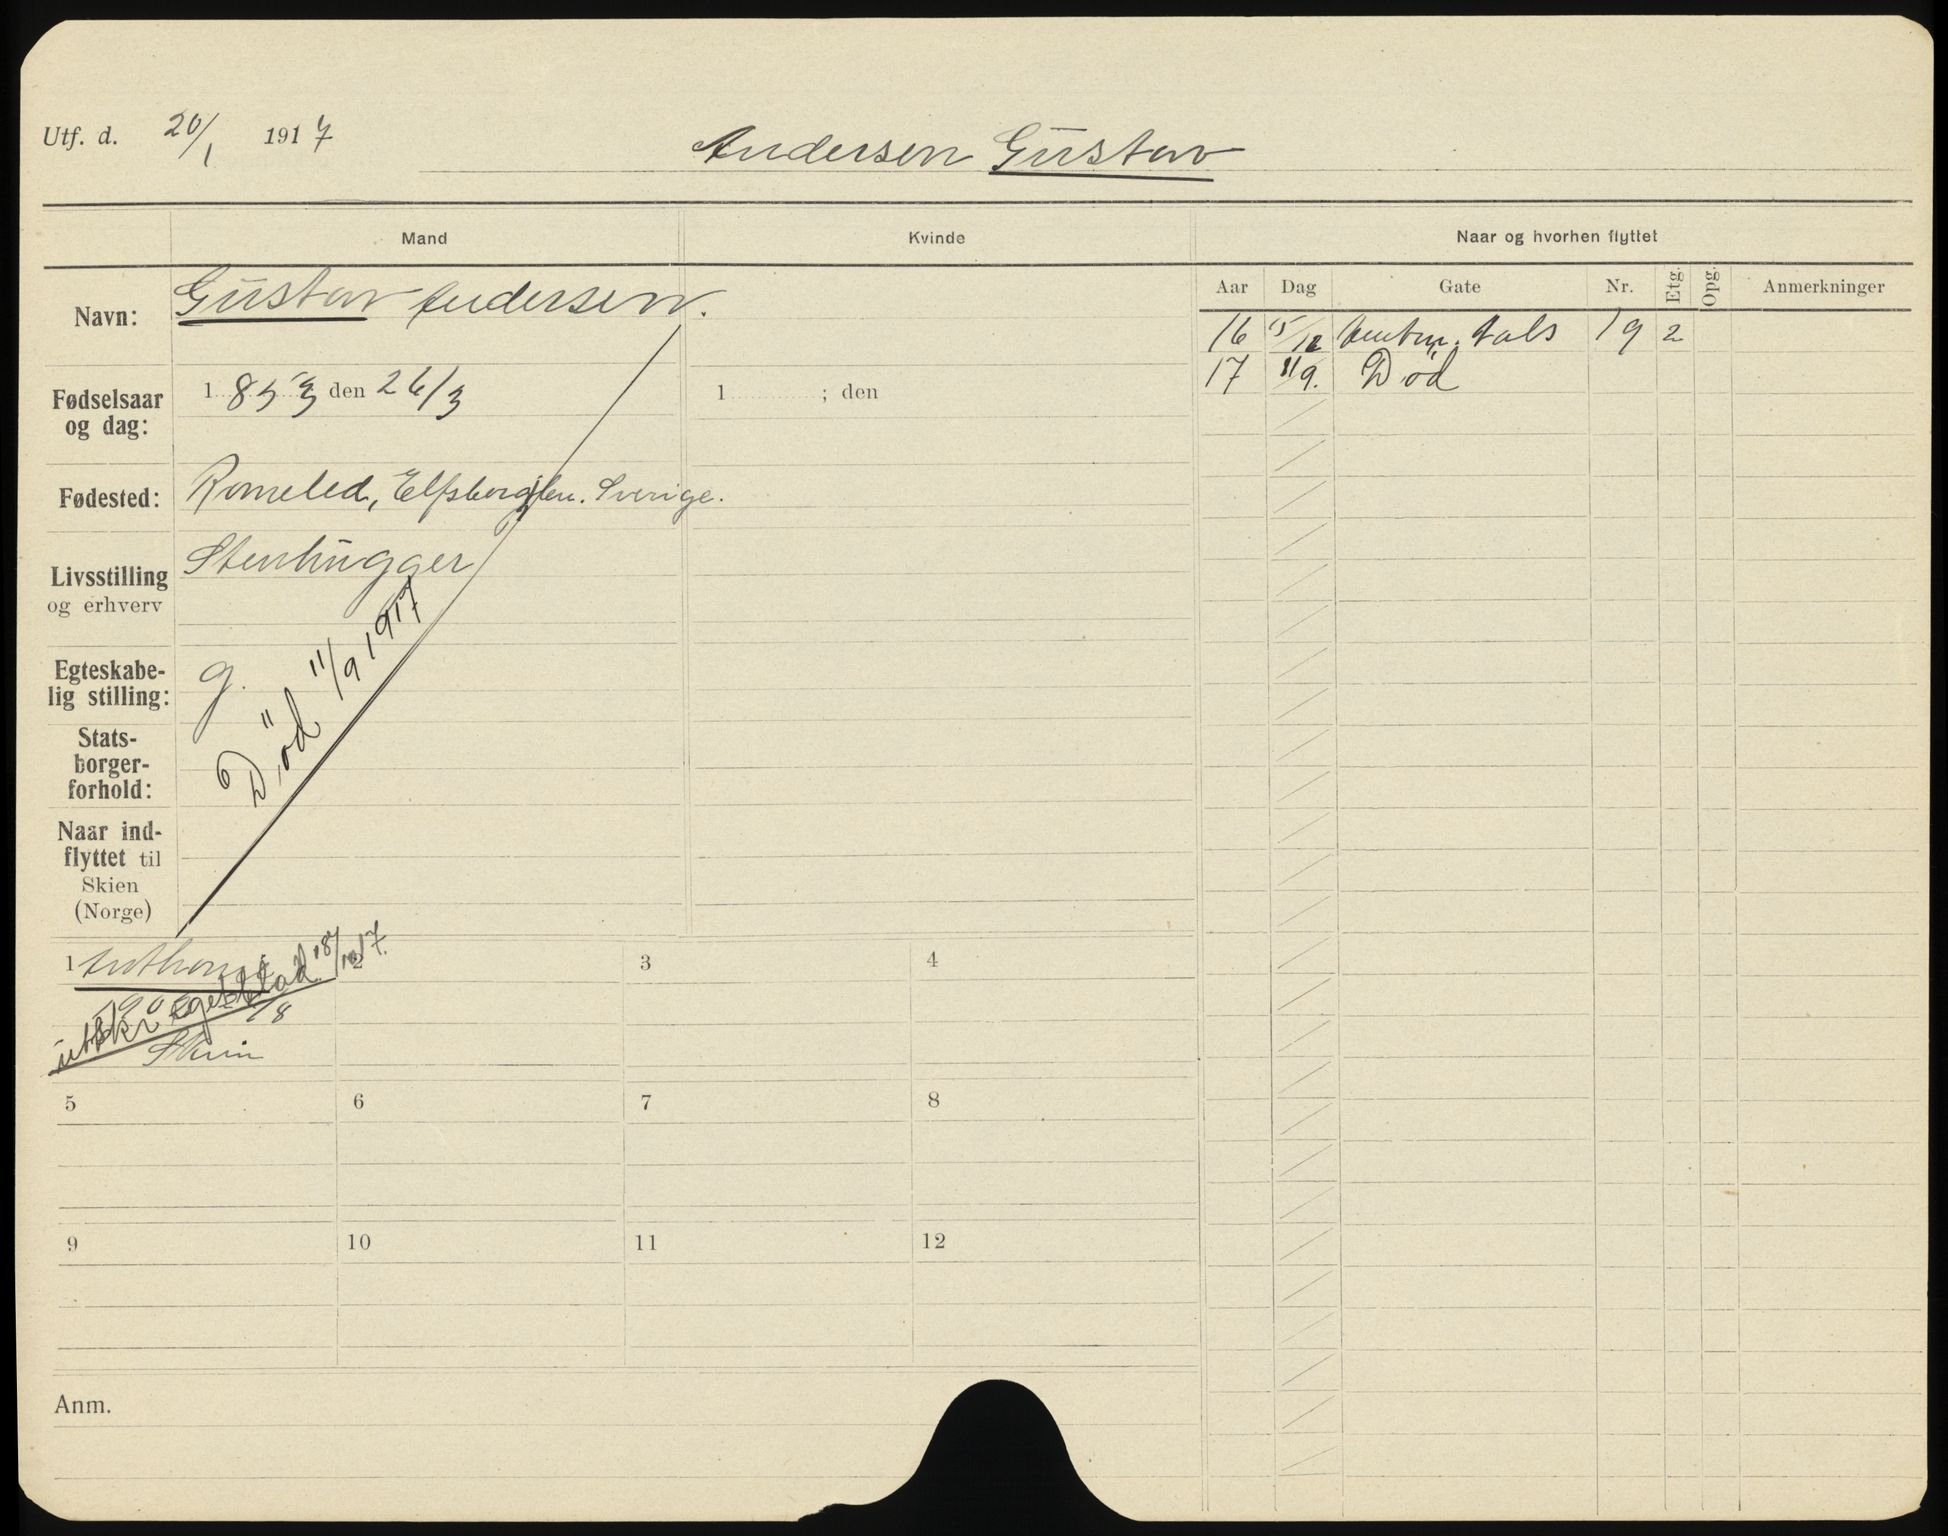 Utf. d. 20/1 1917 Andersen Gustav
Mand Kvinde Naar og hvorhen flyttet
Navn: Gustav Andersen.
Aar Dag Gate Nr. Etg. Opg. Anmerkninger
16 15/12 19 2
17 11/9. Död
Fødselsaar
og dag:
1853 den 26/3
1 ; den
Fødested: Romeled, Elfsborglen. Sverige.
Livsstilling
og erhverv
Stenhugger
Egteskabe-
lig stilling:
g.
Död 11/9 1917
Stats-
borger-
forhold:
Naar ind-
flyttet til
Skien
(Norge)
1 2 3 4
utskr. Eget blad 18/10 17.
Skien
5 6 7 8
9 10 11 12
Anm.